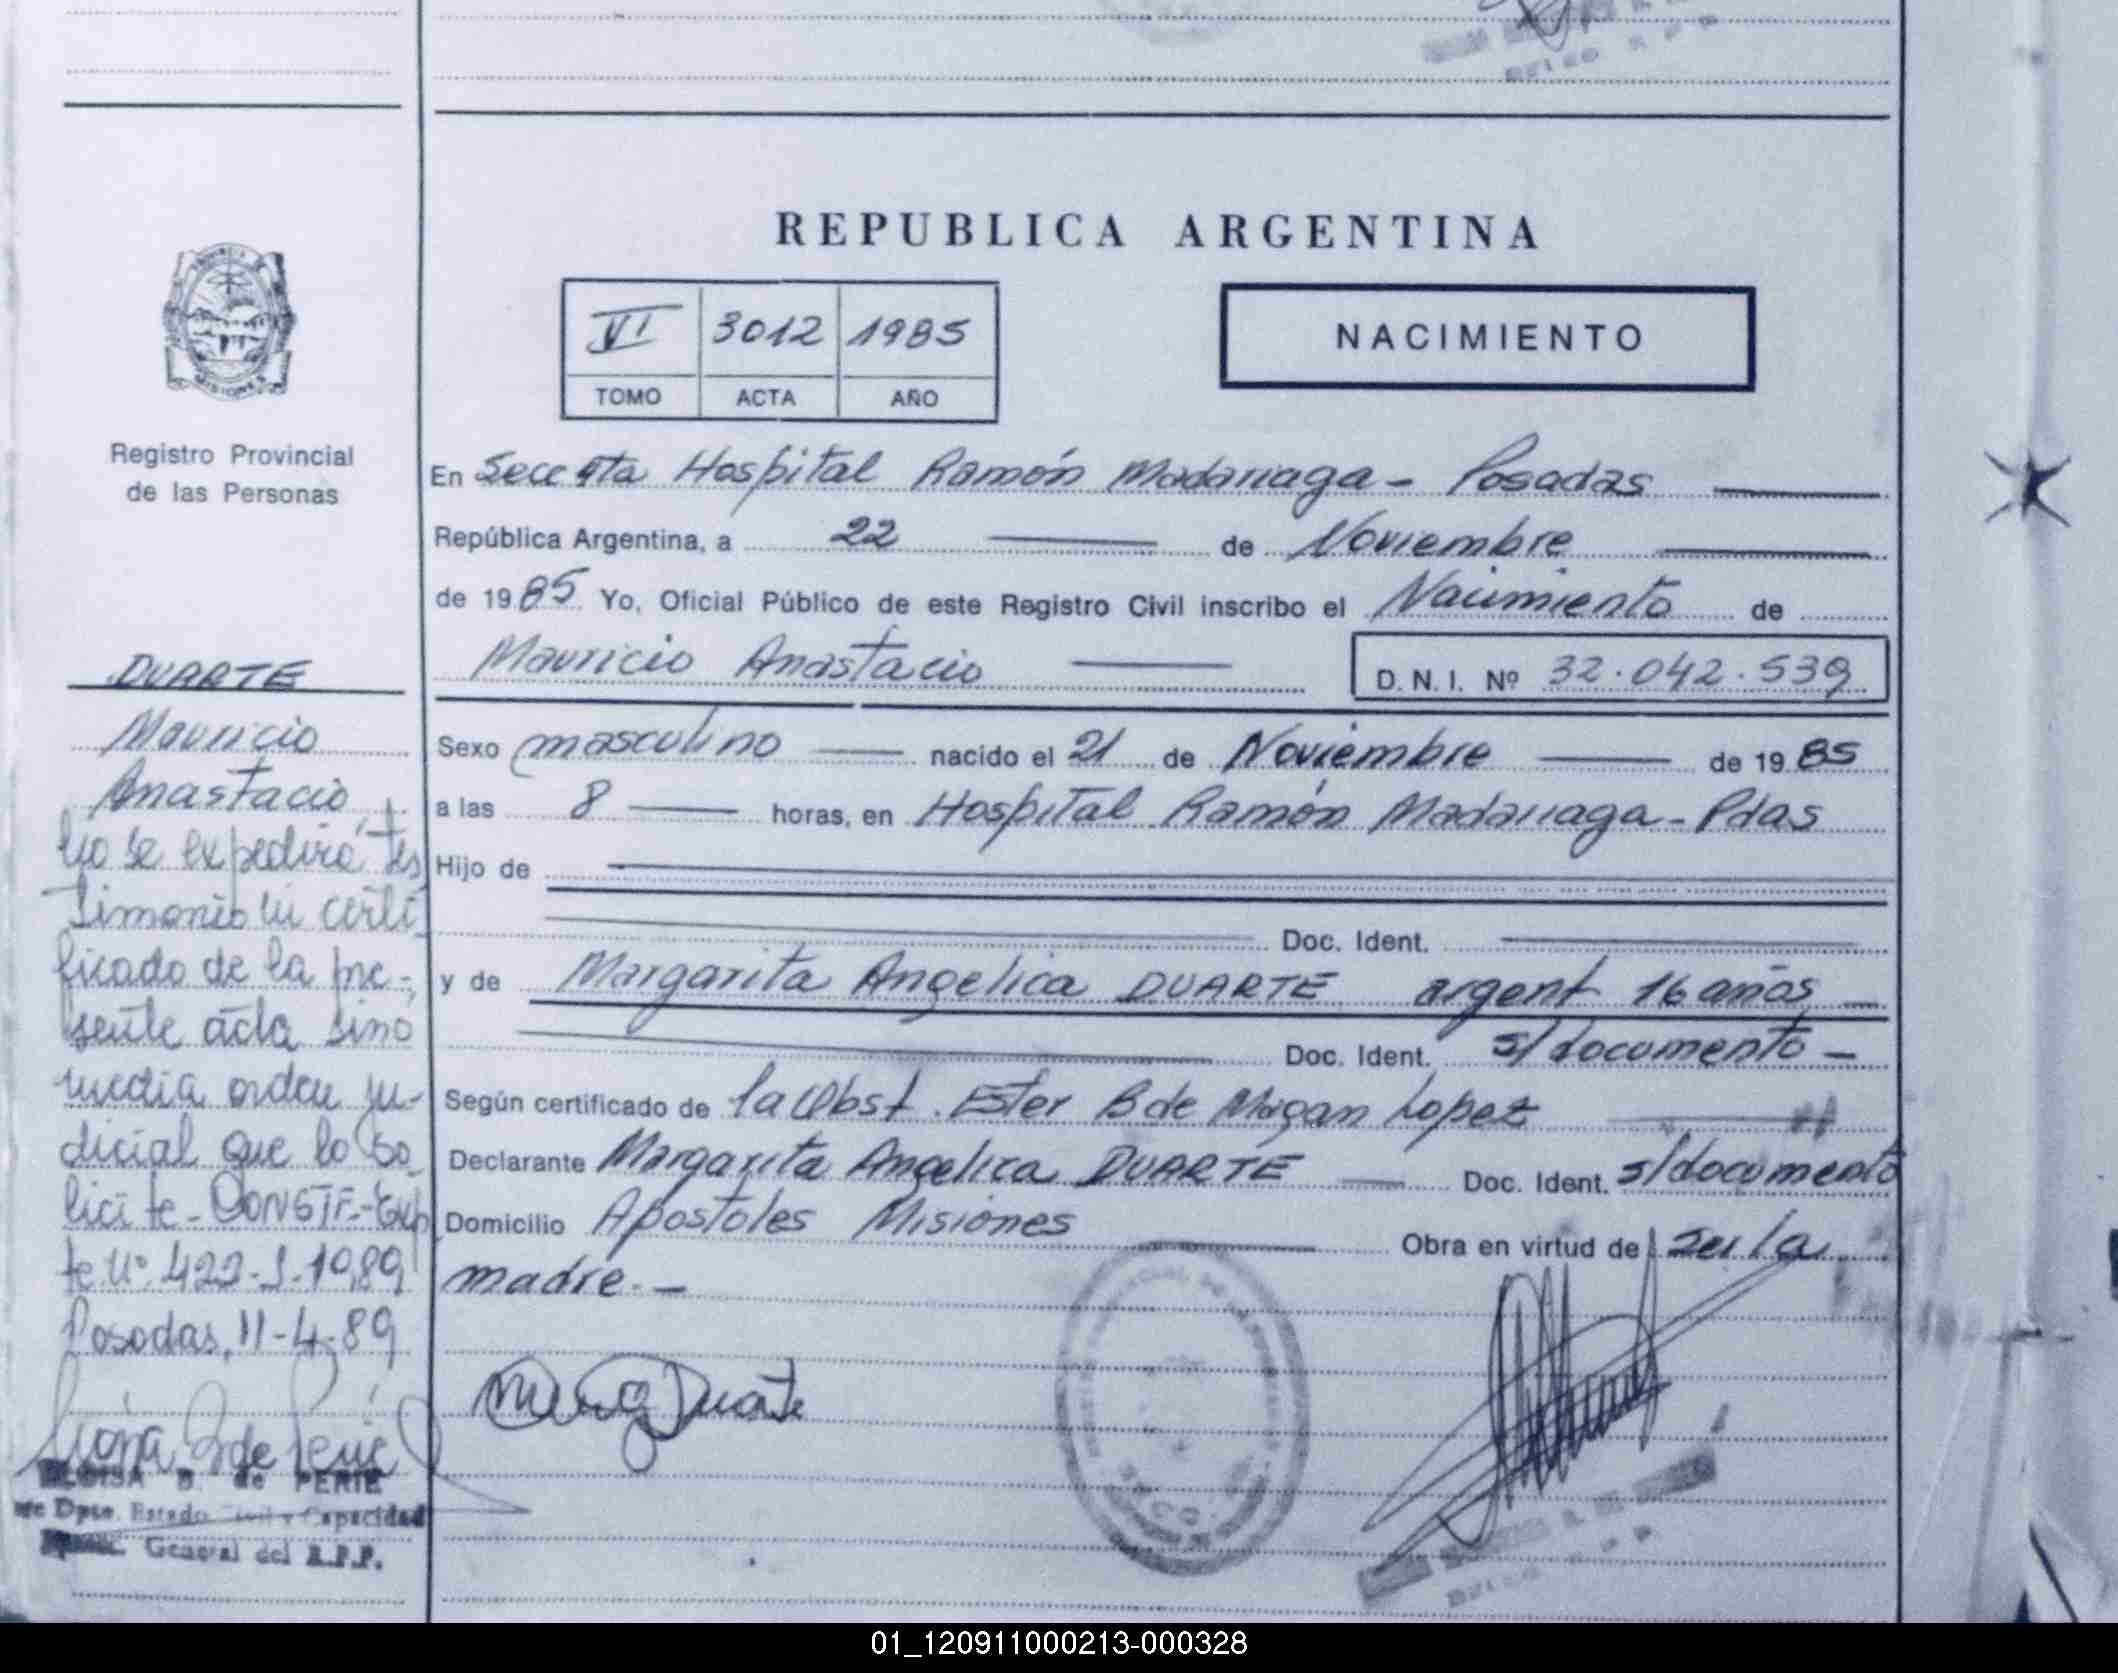 REPUBLICA ARGENTINA
VI 3012 1985
TOMO ACTA AÑO
NACIMIENTO
Registro Provincial
de las Personas
DUARTE
Mauricio
Anastacio
No se expedirá tes
timonio ni certi
ficado de la pre-
sente acta sino
media orden ju-
dicial que lo so
licite - CONSTE - Exp
te Nº 422-S-1989
Posadas, 11-4-89
B. de PERIE
Dpto. Estado Civil y Capacidad
General del R.P.P.
En Secc 4ta Hospital Ramón Madariaga - Posadas
República Argentina, a 22 de Noviembre
de 1985 Yo, Oficial Público de este Registro Civil inscribo el Nacimiento de
Mauricio Anastacio D. N. I. Nº 32.042.539
Sexo masculino nacido el 21 de Noviembre de 1985
a las 8 horas, en Hospital Ramón Madariaga - Pdas
Hijo de
Doc. Ident.
y de Margarita Angelica DUARTE argent 16 años
Doc. Ident. s/documento -
Según certificado de la Obst. Ester B de Morgan Lopez
Declarante Margarita Angelica DUARTE Doc. Ident. s/documento
Domicilio Apostoles Misiones Obra en virtud de ser la
madre. -
Duarte
01_120911000213-000328